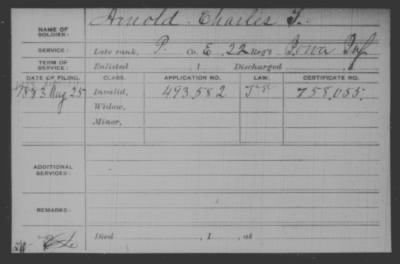 NAME OF SOLDIER: Arnold Charles
SERVICE: Late rank, P. Co. E, 22 Reg't Iowa Inf
TERM OF SERVICE: Enlisted , 1 Discharged
DATE OF FILING. CLASS. APPLICATION NO. LAW. CERTIFICATE NO.
1883 Aug 25 Invalid, 493,582 758,055.
Widow,
Minor,
ADDITIONAL SERVICES:
REMARKS:
Died , 1 , at